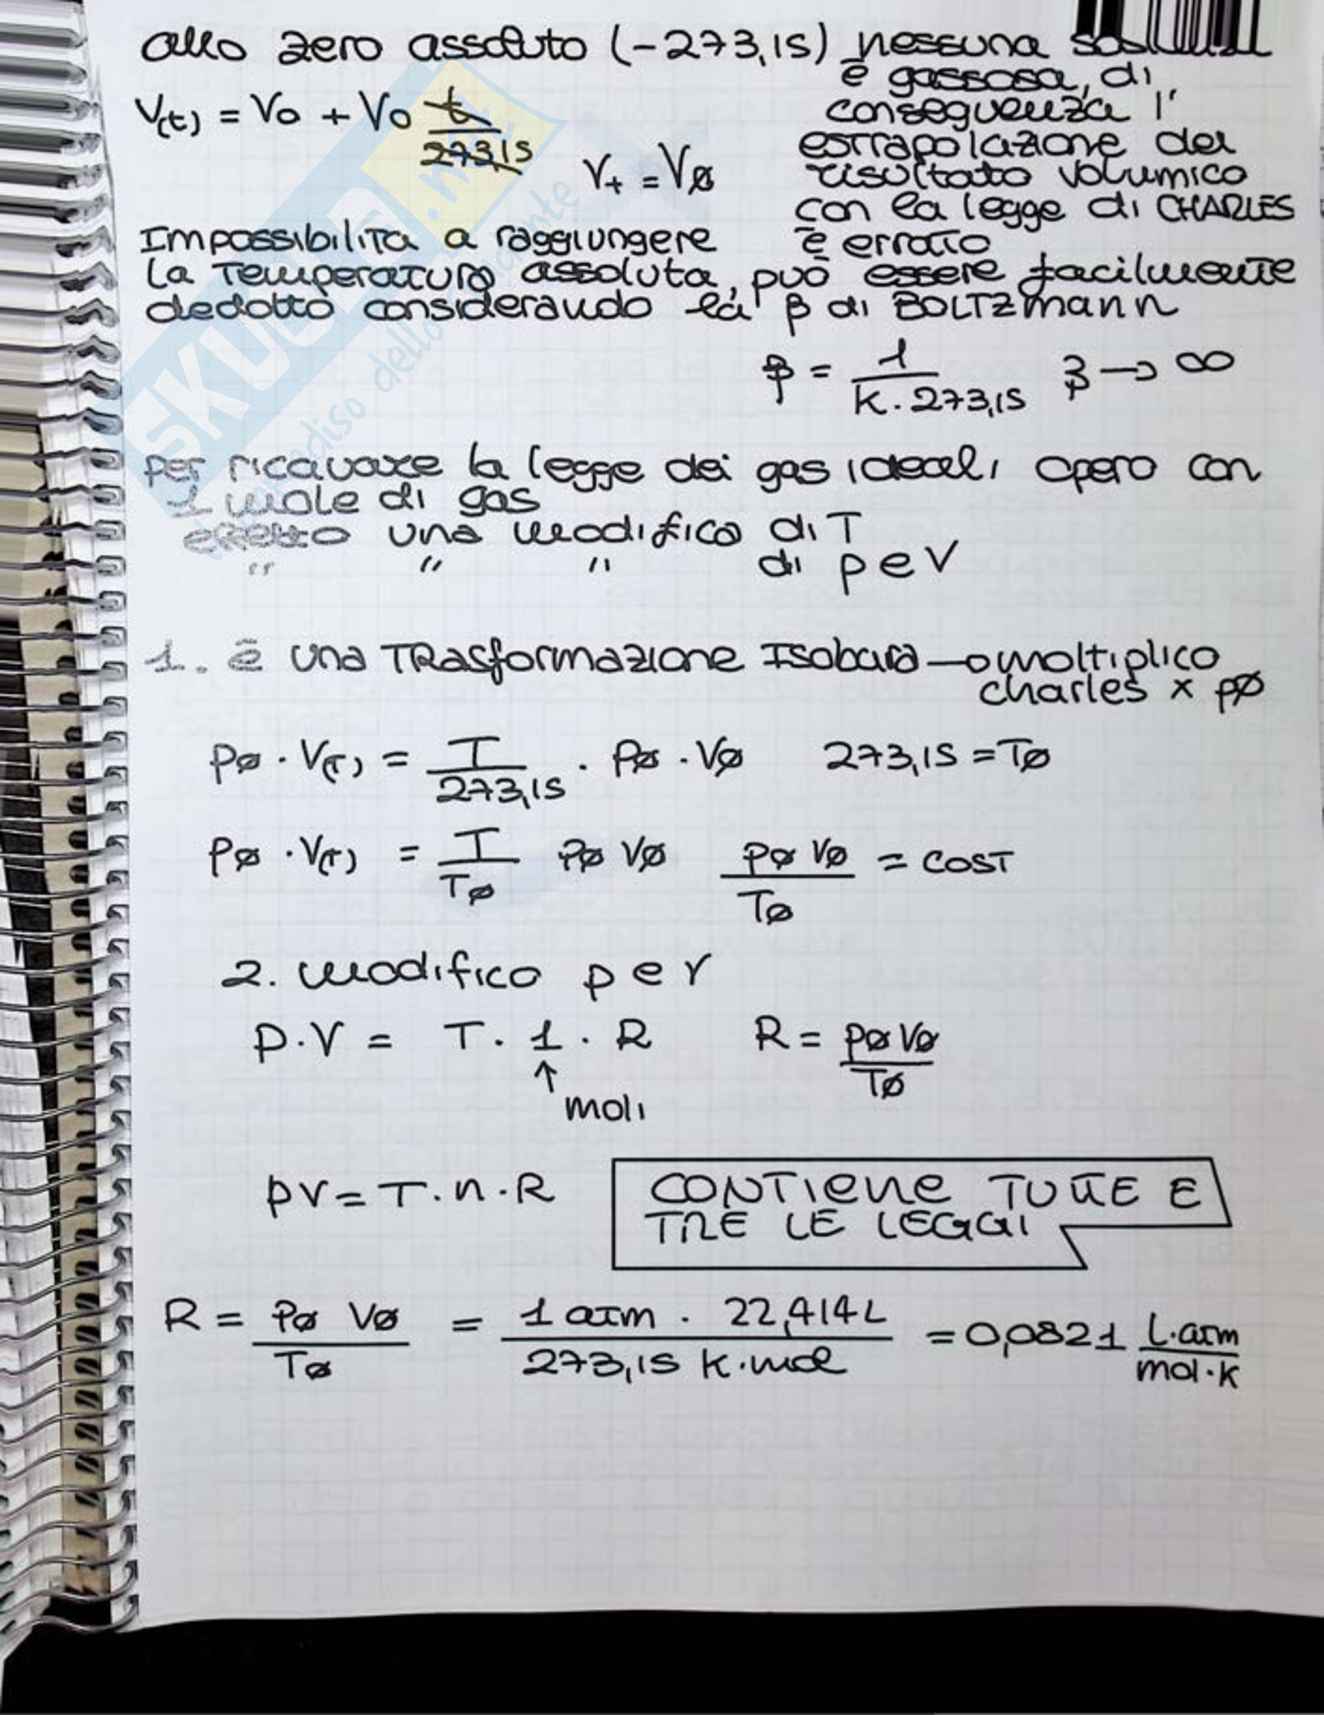 allo zero assoluto (-273,15) nessuna
è gassosa, di
V(t) = V0 + V0 t/273,15
conseguenza l'
estrapolazione del
Vt = VØ
risultato volumico
con la legge di CHARLES
Impossibilità a raggiungere è errato
la temperatura assoluta, può essere facilmente
dedotto considerando la β di BOLTZmann
β = 1/(K · 273,15) β → ∞
per ricavare la legge dei gas ideali opero con
1 mole di gas
effetto una modifica di T
" " " di p e V
1. è una TRasformazione Isobara → moltiplico
charles x pØ
pØ · V(T) = T/273,15 · pØ · VØ 273,15 = TØ
pØ · V(T) = T/TØ pØ VØ pØ VØ/TØ = COST
2. modifico p e V
P · V = T · 1 · R R = pØ VØ/TØ
↑
moli
pV = T · n · R CONTIENE TUTTE E
TRE LE LEGGI
R = PØ VØ/TØ = 1 atm · 22,414 L/273,15 K · mol = 0,0821 L·atm/mol·K
SKUOLA.net